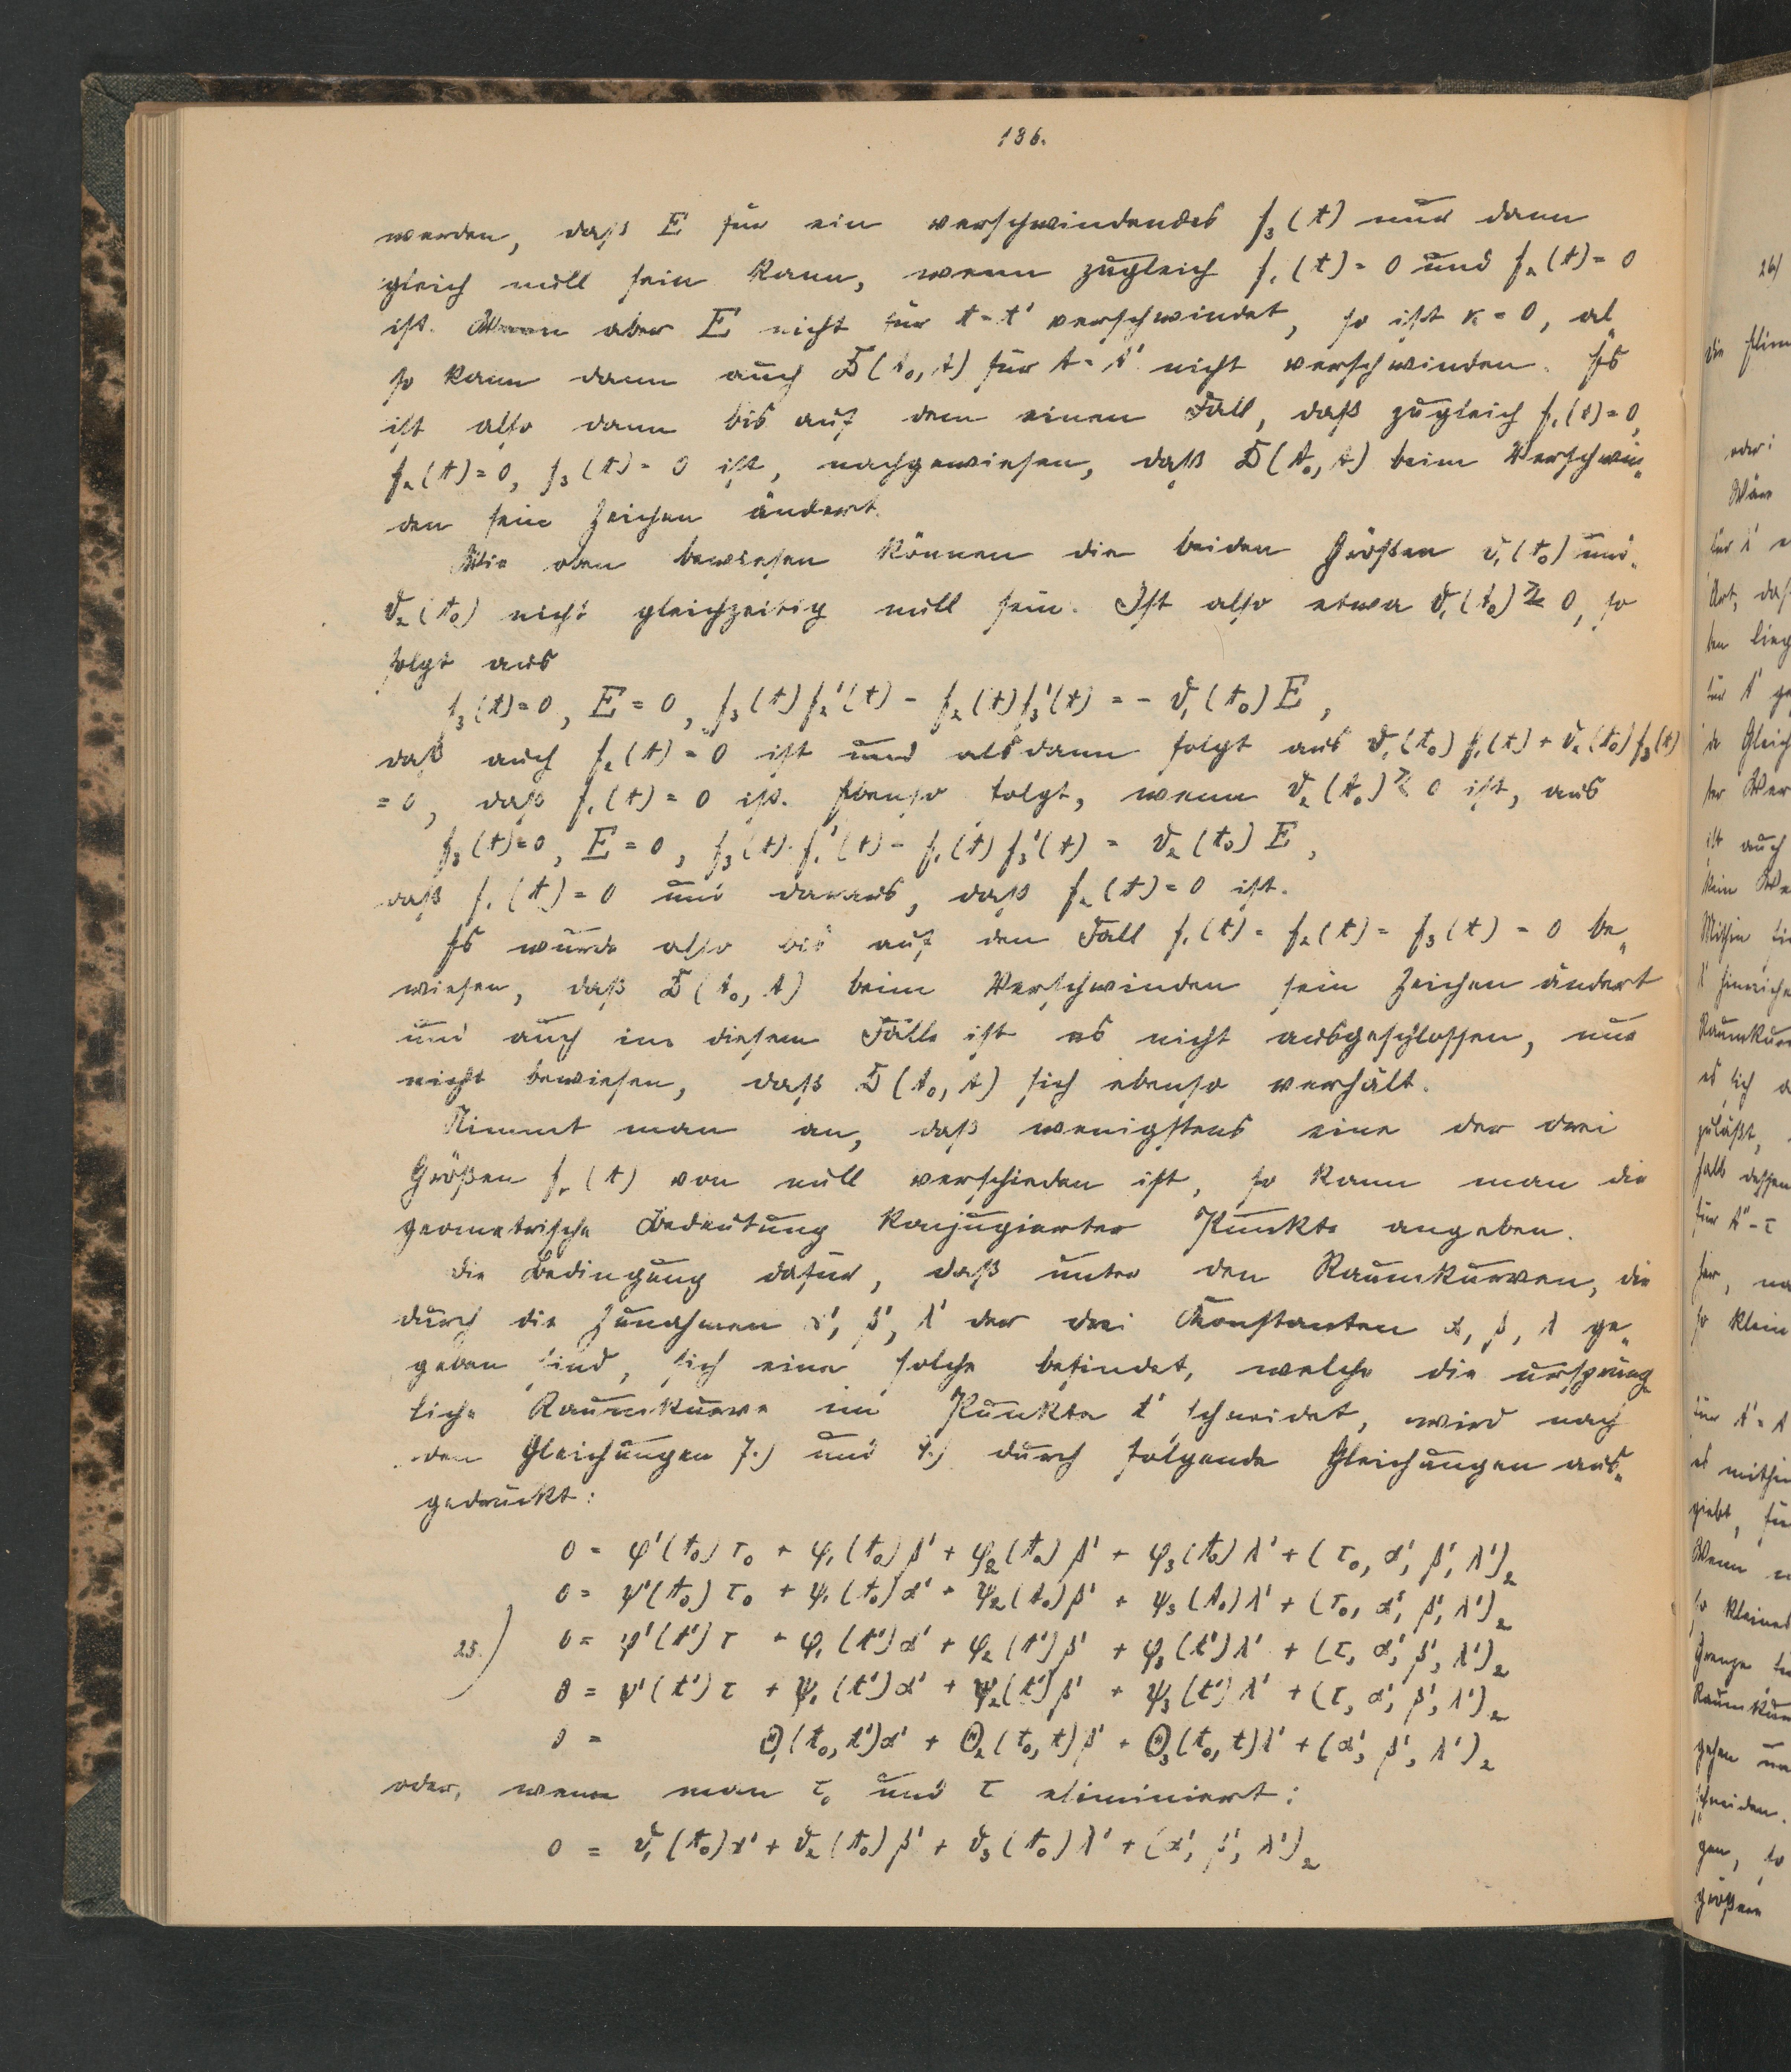 186.
werden, daß E für ein verschwindendes f₃(t) nur dann
gleich null sein kann, wenn zugleich f₁(t) = 0 und f₂(t) = 0
ist. Wenn aber E nicht für t = t' verschwindet, so ist κ = 0, al„
so kann dann auch D(t₀, t) für t = t' nicht verschwinden. Es
ist also dann bis auf den einen Fall, daß zugleich f₁(t) = 0,
f₂(t) = 0, f₃(t) = 0 ist, nachgewiesen, daß D(t₀, t) beim Verschwin„
den sein Zeichen ändert.
Wie oben bewiesen können die beiden Größen ϑ₁(t₀) und
ϑ₂(t₀) nicht gleichzeitig null sein. Ist also etwa ϑ₁(t₀) ≷ 0, so
folgt aus
f₃(t) = 0, E = 0, f₃(t) f₂'(t) - f₂(t) f₃'(t) = - ϑ₁(t₀) E,
daß auch f₂(t) = 0 ist und alsdann folgt aus ϑ₁(t₀) f₁(t) + ϑ₂(t₀) f₃(t)
= 0, daß f₁(t) = 0 ist. Ebenso folgt, wenn ϑ₂(t₀) ≷ 0 ist, aus
f₃(t) = 0, E = 0, f₃(t) · f₁'(t) - f₁(t) f₃'(t) = ϑ₂(t₀) E,
daß f₁(t) = 0 und daraus, daß f₂(t) = 0 ist.
Es wurde also bis auf den Fall f₁(t) = f₂(t) = f₃(t) = 0 be„
wiesen, daß D(t₀, t) beim Verschwinden sein Zeichen ändert
und auch in diesem Falle ist es nicht ausgeschlossen, nur
nicht bewiesen, daß D(t₀, t) sich ebenso verhält.
Nimmt man an, daß wenigstens eine der drei
Größen fᵣ(t) von null verschieden ist, so kann man die
geometrische Bedeutung konjugierter Punkte angeben.
Die Bedingung dafür, daß unter den Raumkurven, die
durch die Zunahmen α', β', λ' der drei Konstanten α, β, λ ge„
geben sind, sich eine solche befindet, welche die ursprüng„
liche Raumkurve im Punkte t' schneidet, wird nach
den Gleichungen 7.) und 9.) durch folgende Gleichungen aus„
gedrückt:
0 = φ'(t₀) τ₀ + φ₁(t₀) β' + φ₂(t₀) β' + φ₃(t₀) λ' + (τ₀, α', β', λ')₂
0 = ψ'(t₀) τ₀ + ψ₁(t₀) α' + ψ₂(t₀) β' + ψ₃(t₀) λ' + (τ₀, α', β', λ')₂
25.) 0 = φ'(t') τ + φ₁(t') α' + φ₂(t') β' + φ₃(t') λ' + (τ, α', β', λ')₂
0 = ψ'(t') τ + ψ₁(t') α' + ψ₂(t') β' + ψ₃(t') λ' + (τ, α', β', λ')₂
0 = Θ₁(t₀, t') α' + Θ₂(t₀, t) β' + Θ₃(t₀, t) λ' + (α', β', λ')₂
oder, wenn man τ₀ und τ eliminiert:
0 = ϑ₁(t₀) α' + ϑ₂(t₀) β' + ϑ₃(t₀) λ' + (α', β', λ')₂
26)
oder: